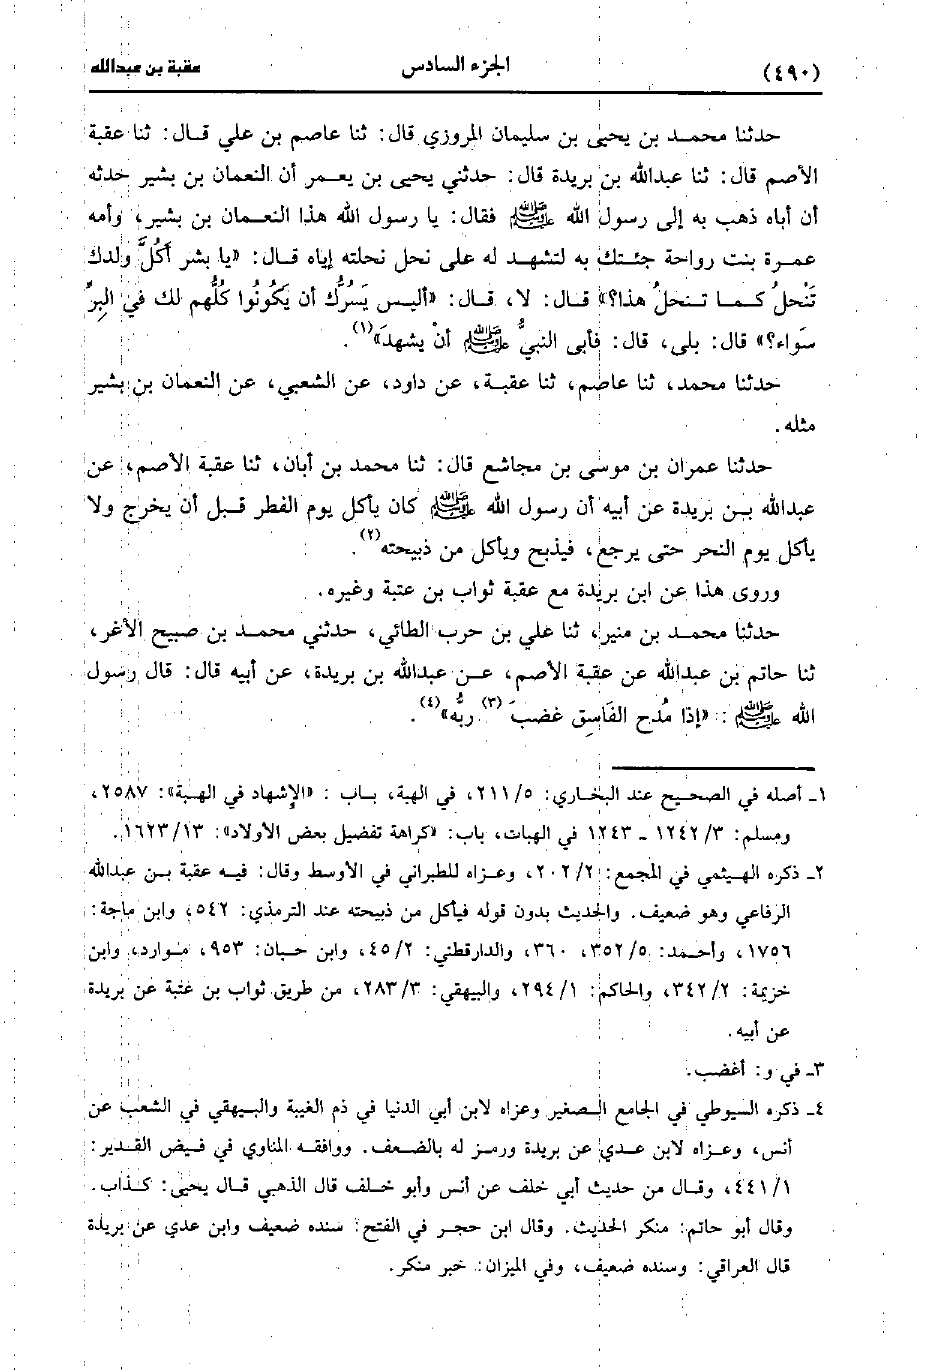 (٤٩٠) الجزء السادس عقبة بن عبدالله
حدثنا محمد بن يحيى بن سليمان المروزي قال: ثنا عاصم بن علي قال: ثنا عقبة
الأصم قال: ثنا عبدالله بن بريدة قال: حدثني يحيى بن يعمر أن النعمان بن بشير حدثه
أن أباه ذهب به إلى رسول الله ﷺ فقال: يا رسول الله هذا النعمان بن بشير، وأمه
عمرة بنت رواحة جئتك به لتشهد له على نحل نحلته إياه قال: «يا بشر أَكُلَّ ولدك
تَنْحلُ كما تنحلُ هذا؟» قال: لا، قال: «أليس يَسرُّك أن يَكُونُوا كُلُّهم لك في البِرِّ
سَواء؟» قال: بلى، قال: فأبى النبيُّ ﷺ أنْ يشهدَ»(١).
حدثنا محمد، ثنا عاصم، ثنا عقبة، عن داود، عن الشعبي، عن النعمان بن بشير
مثله.
حدثنا عمران بن موسى بن مجاشع قال: ثنا محمد بن أبان، ثنا عقبة الأصم، عن
عبدالله بن بريدة عن أبيه أن رسول الله ﷺ كان يأكل يوم الفطر قبل أن يخرج ولا
يأكل يوم النحر حتى يرجع، فيذبح ويأكل من ذبيحته(٢).
وروى هذا عن ابن بريدة مع عقبة ثواب بن عتبة وغيره.
حدثنا محمد بن منير، ثنا علي بن حرب الطائي، حدثني محمد بن صبيح الأغر،
ثنا حاتم بن عبدالله عن عقبة الأصم، عن عبدالله بن بريدة، عن أبيه قال: قال رسول
الله ﷺ: «إذا مُدح الفَاسِق غضبَ(٣) ربُّه»(٤).
١ـ أصله في الصحيح عند البخاري: ٢١١/٥، في الهبة، باب : «الإشهاد في الهبة»: ٢٥٨٧،
ومسلم: ١٢٤٢/٣ ـ ١٢٤٣ في الهبات، باب: «كراهة تفضيل بعض الأولاد»: ١٦٢٣/١٣.
٢ـ ذكره الهيثمي في المجمع: ٢٠٢/٢، وعزاه للطبراني في الأوسط وقال: فيه عقبة بن عبدالله
الرفاعي وهو ضعيف. والحديث بدون قوله فيأكل من ذبيحته عند الترمذي: ٥٤٢، وابن ماجة:
١٧٥٦، وأحمد: ٣٥٢/٥، ٣٦٠، والدارقطني: ٤٥/٢، وابن حبان: ٩٥٣، موارد، وابن
خزيمة: ٣٤٢/٢، والحاكم: ٢٩٤/١، والبيهقي: ٢٨٣/٣، من طريق ثواب بن عتبة عن بريدة
عن أبيه.
٣ـ في و: أغضب.
٤ـ ذكره السيوطي في الجامع الصغير وعزاه لابن أبي الدنيا في ذم الغيبة والبيهقي في الشعب عن
أنس، وعزاه لابن عدي عن بريدة ورمز له بالضعف. ووافقه المناوي في فيض القدير:
٤٤١/١، وقال من حديث أبي خلف عن أنس وأبو خلف قال الذهبي قال يحيى: كذاب.
وقال أبو حاتم: منكر الحديث. وقال ابن حجر في الفتح: سنده ضعيف وابن عدي عن بريدة
قال العراقي: وسنده ضعيف، وفي الميزان: خبر منكر.